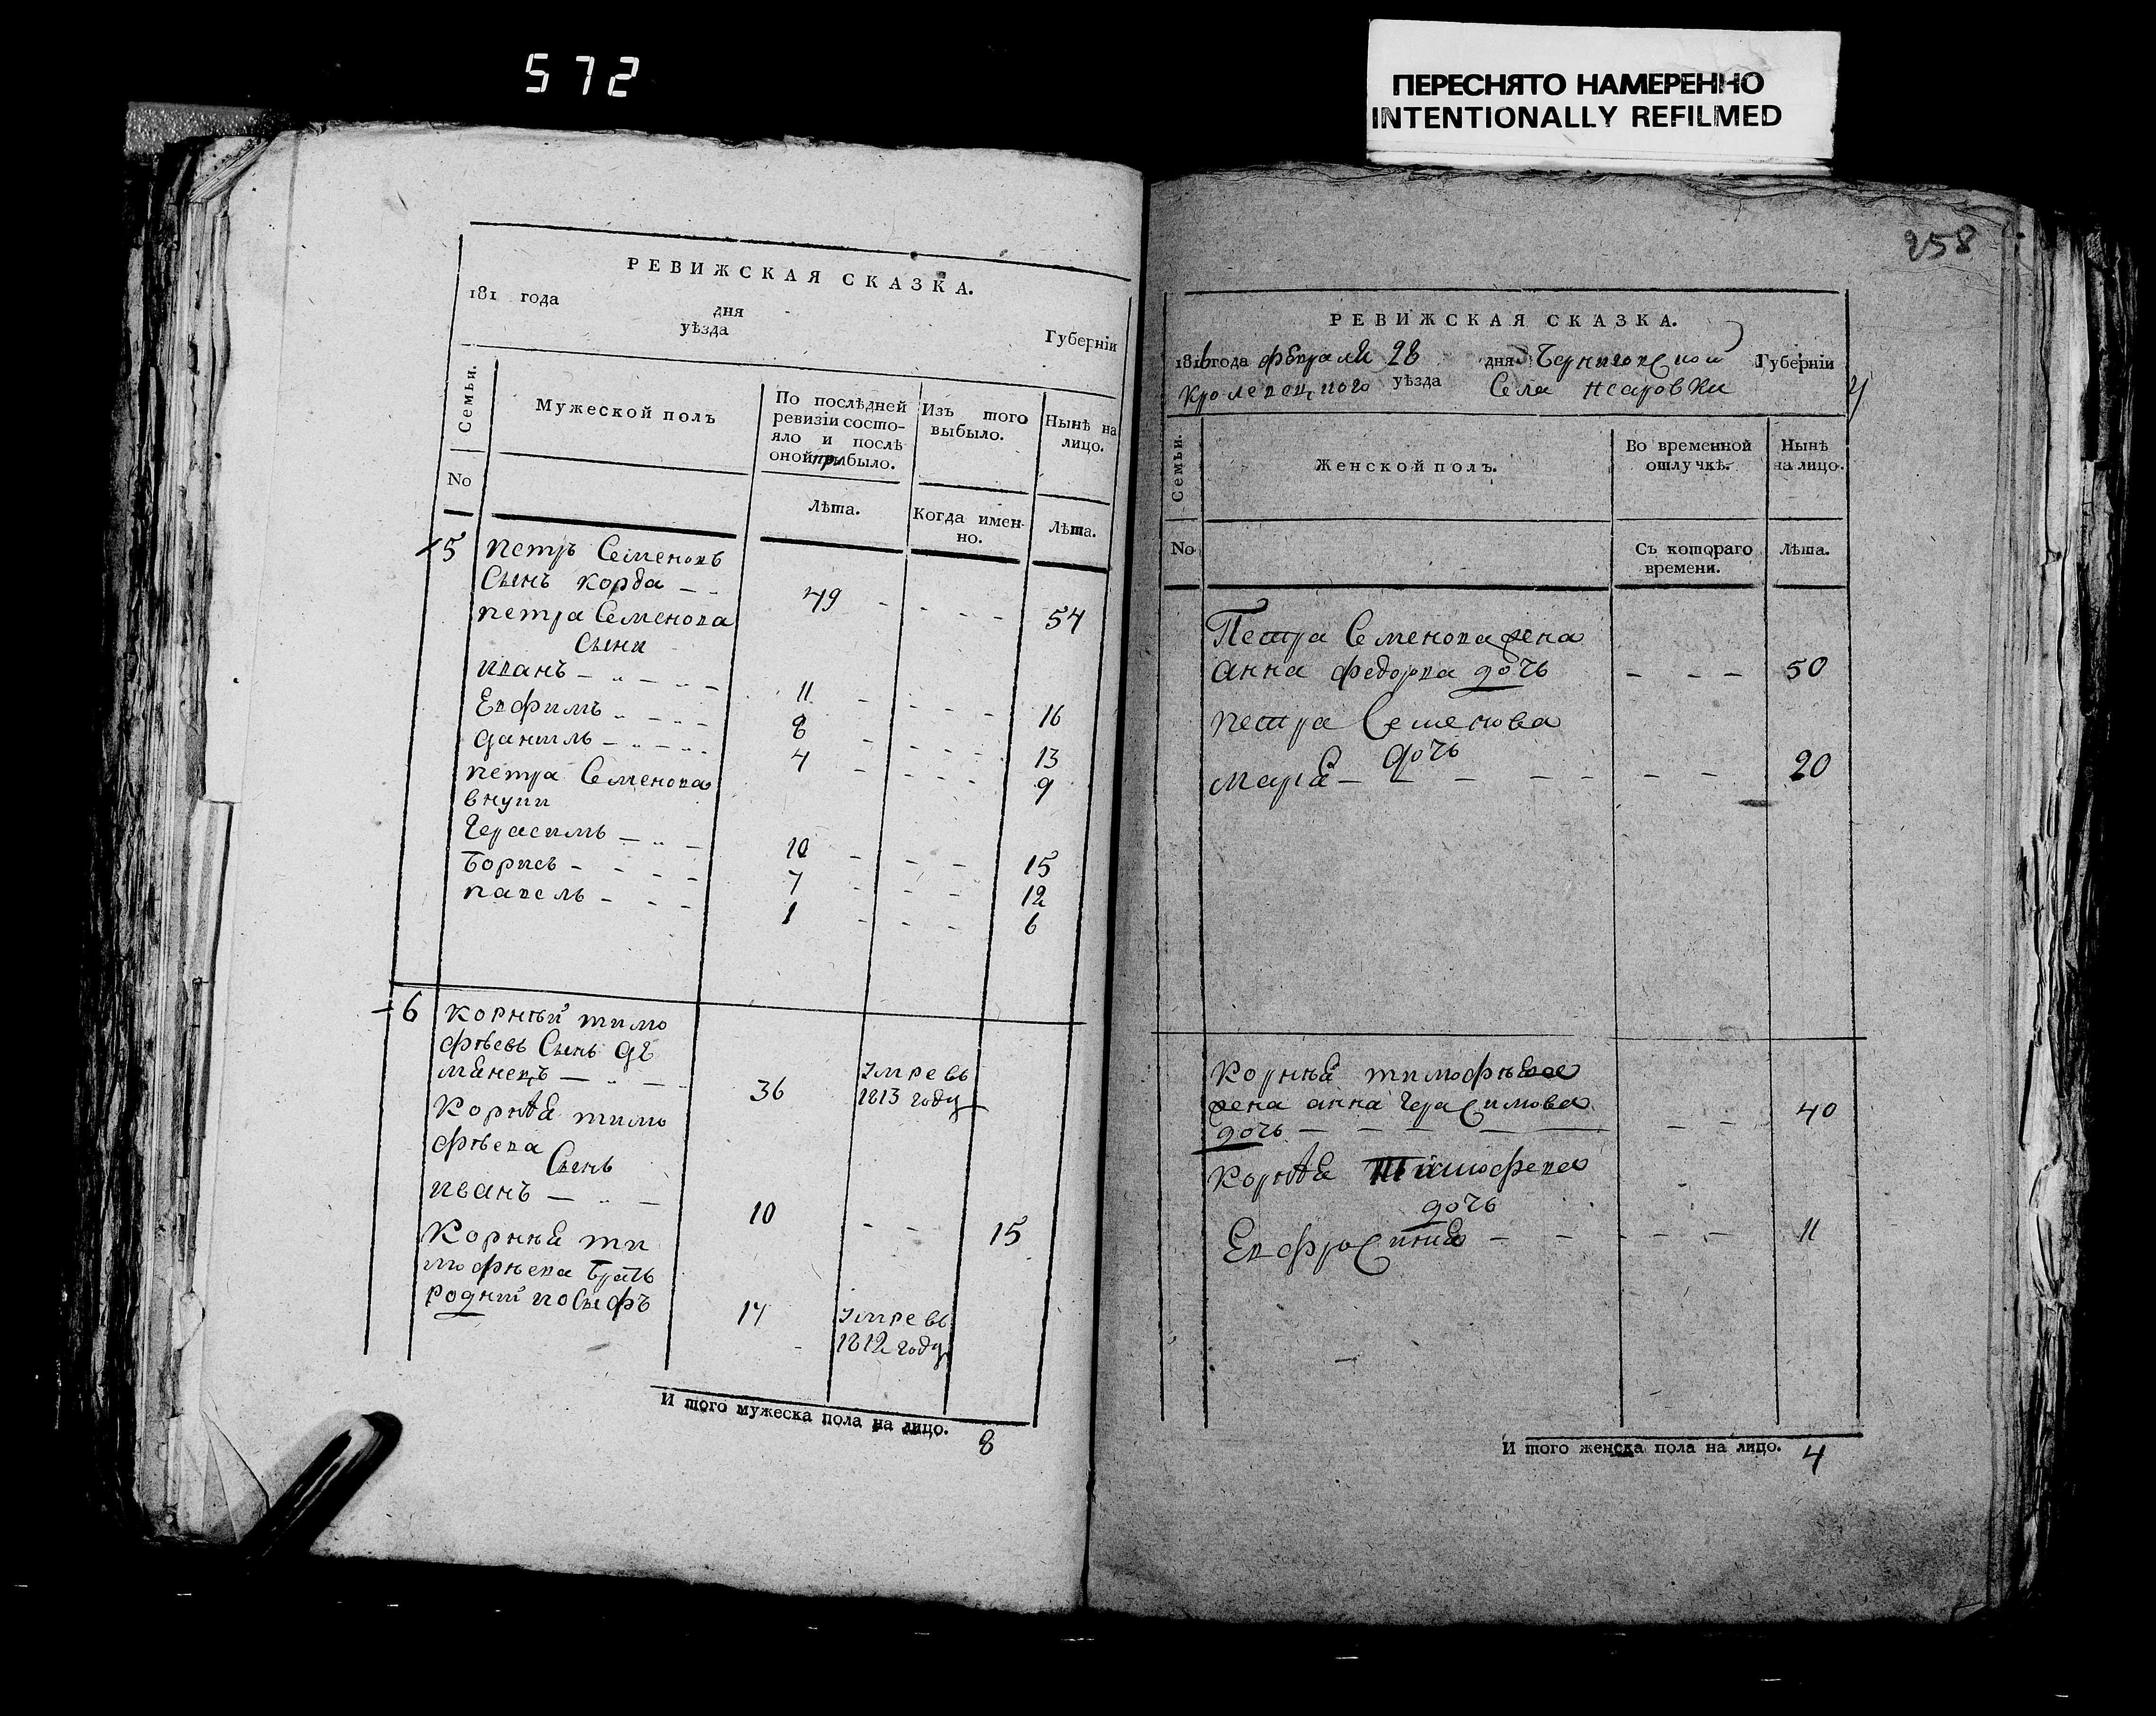 572
ПЕРЕСНЯТО НАМЕРЕННО
INTENTIONALLY REFILMED
РЕВИЖСКАЯ СКАЗКА.
181 года дня
уѣзда Губерніи
Семьи.
No
Мужеской полъ
По послѣдней
ревизіи состо-
яло и послѣ
оной прибыло.
Лѣта.
Изъ того
выбыло.
Когда имен-
но.
Нынѣ на
лицо.
Лѣта.
5 петръ Семеновъ
Сынъ корда 49 54
петра Семенова
Сыни
иванъ 11 16
Евфимъ 8 13
данилъ 4 9
петра Семенова
внуки
Герасимъ 10 15
Борисъ 7 12
павелъ 1 6
6 корнѣй тимо
фѣевъ Сынъ де
манецъ 36 Умревъ
1813 году
Корнѣя тимо
фѣева
Сынъ
иванъ 10 15
Корнѣя ти
мофѣева братъ
родній иосыфъ 14 Умревъ
1812 году
И того мужеска пола на лицо. 8
258
РЕВИЖСКАЯ СКАЗКА.
1816 года февраля 28 дня Черниговской Губерніи
Кролевецкого уѣзда Села
Семьи.
No
Женской полъ.
Во временной
отлучкѣ.
Съ котораго
времени.
Нынѣ
на лицо.
Лѣта.
Петра Семенова жена
анна федорва дочь 50
петра Семенова
дочь
Марія 20
Корнѣя тимофѣева
жена анна Герасимова
дочь 40
Корнѣя Тимофева
дочь
Евфросинія 11
И того женска пола на лицо. 4